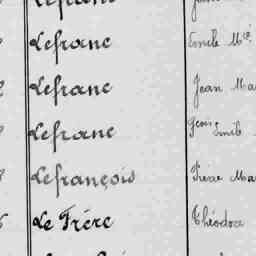 Lefranc Emile Mie
Lefranc Jean Ma
Lefranc Emile
Lefrançois Pierre Ma
Le Frère Théodore